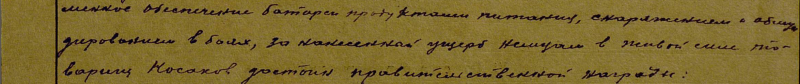 менное обеспечение батареи продуктами питания, снаряжением и обмун
дированием в боях, за нанесенный ущерб немцам в живой силе то-
варищ Косаков достоин правительственной награды: